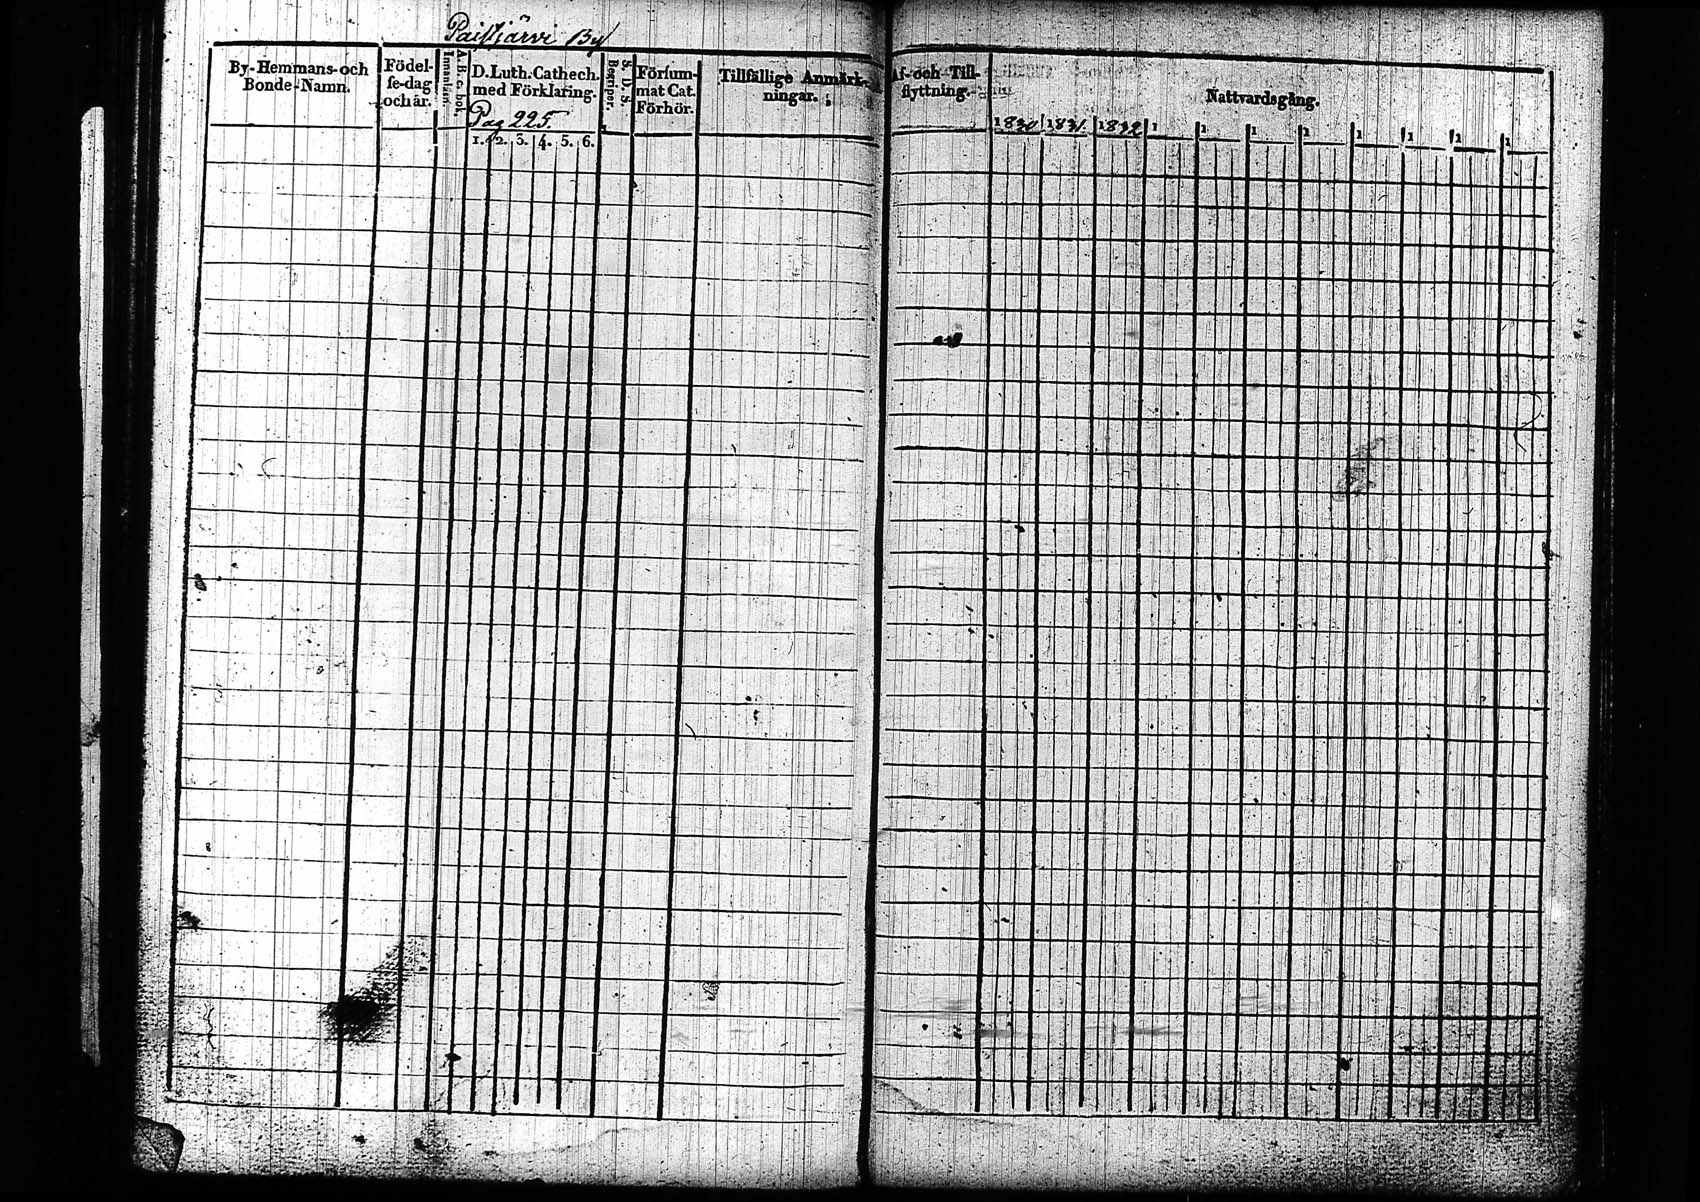 Paistjärvi By
By-Hemmans-och
Bonde-Namn.
Födel-
se-dag
och år.
A. B. c. bok.
Innanläsn.
D. Luth. Cathech.
med Förklaring.
Pag 225.
1. 2. 3. 4. 5. 6.
S. D. S.
Begriper.
Försum-
mat Cat.
Förhör.
Tillfällige Anmärk-
ningar.
Af- och Till-
flyttning.
Nattvardsgång.
1830 1831. 1832 1 1 1 1 1 1 1 1